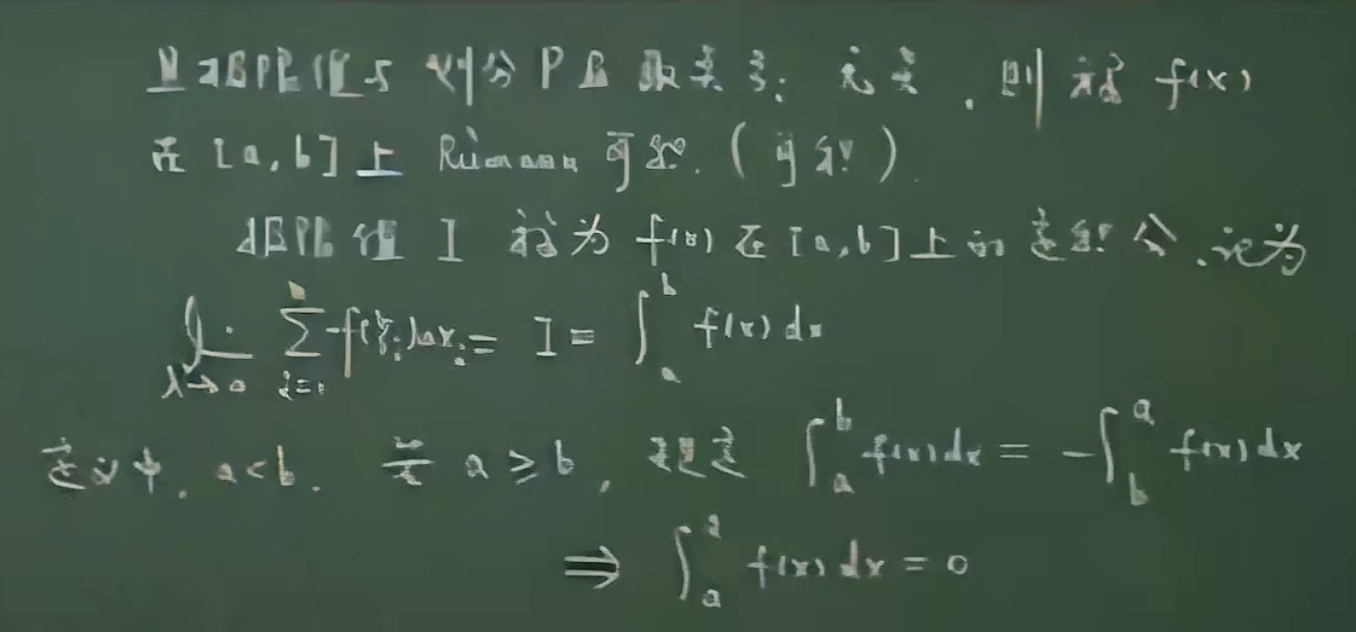 且极限值与划分P及取点ξᵢ无关,则称f(x)
在[a,b]上Riemann可积.(可积)
极限值I称为f(x)在[a,b]上的定积分.记为
lim_{λ→0} Σ_{i=1}^{n} f(ξᵢ)Δxᵢ = I = ∫_a^b f(x)dx
定义中,a<b. 若a≥b,规定 ∫_a^b f(x)dx = -∫_b^a f(x)dx
⇒ ∫_a^a f(x)dx = 0